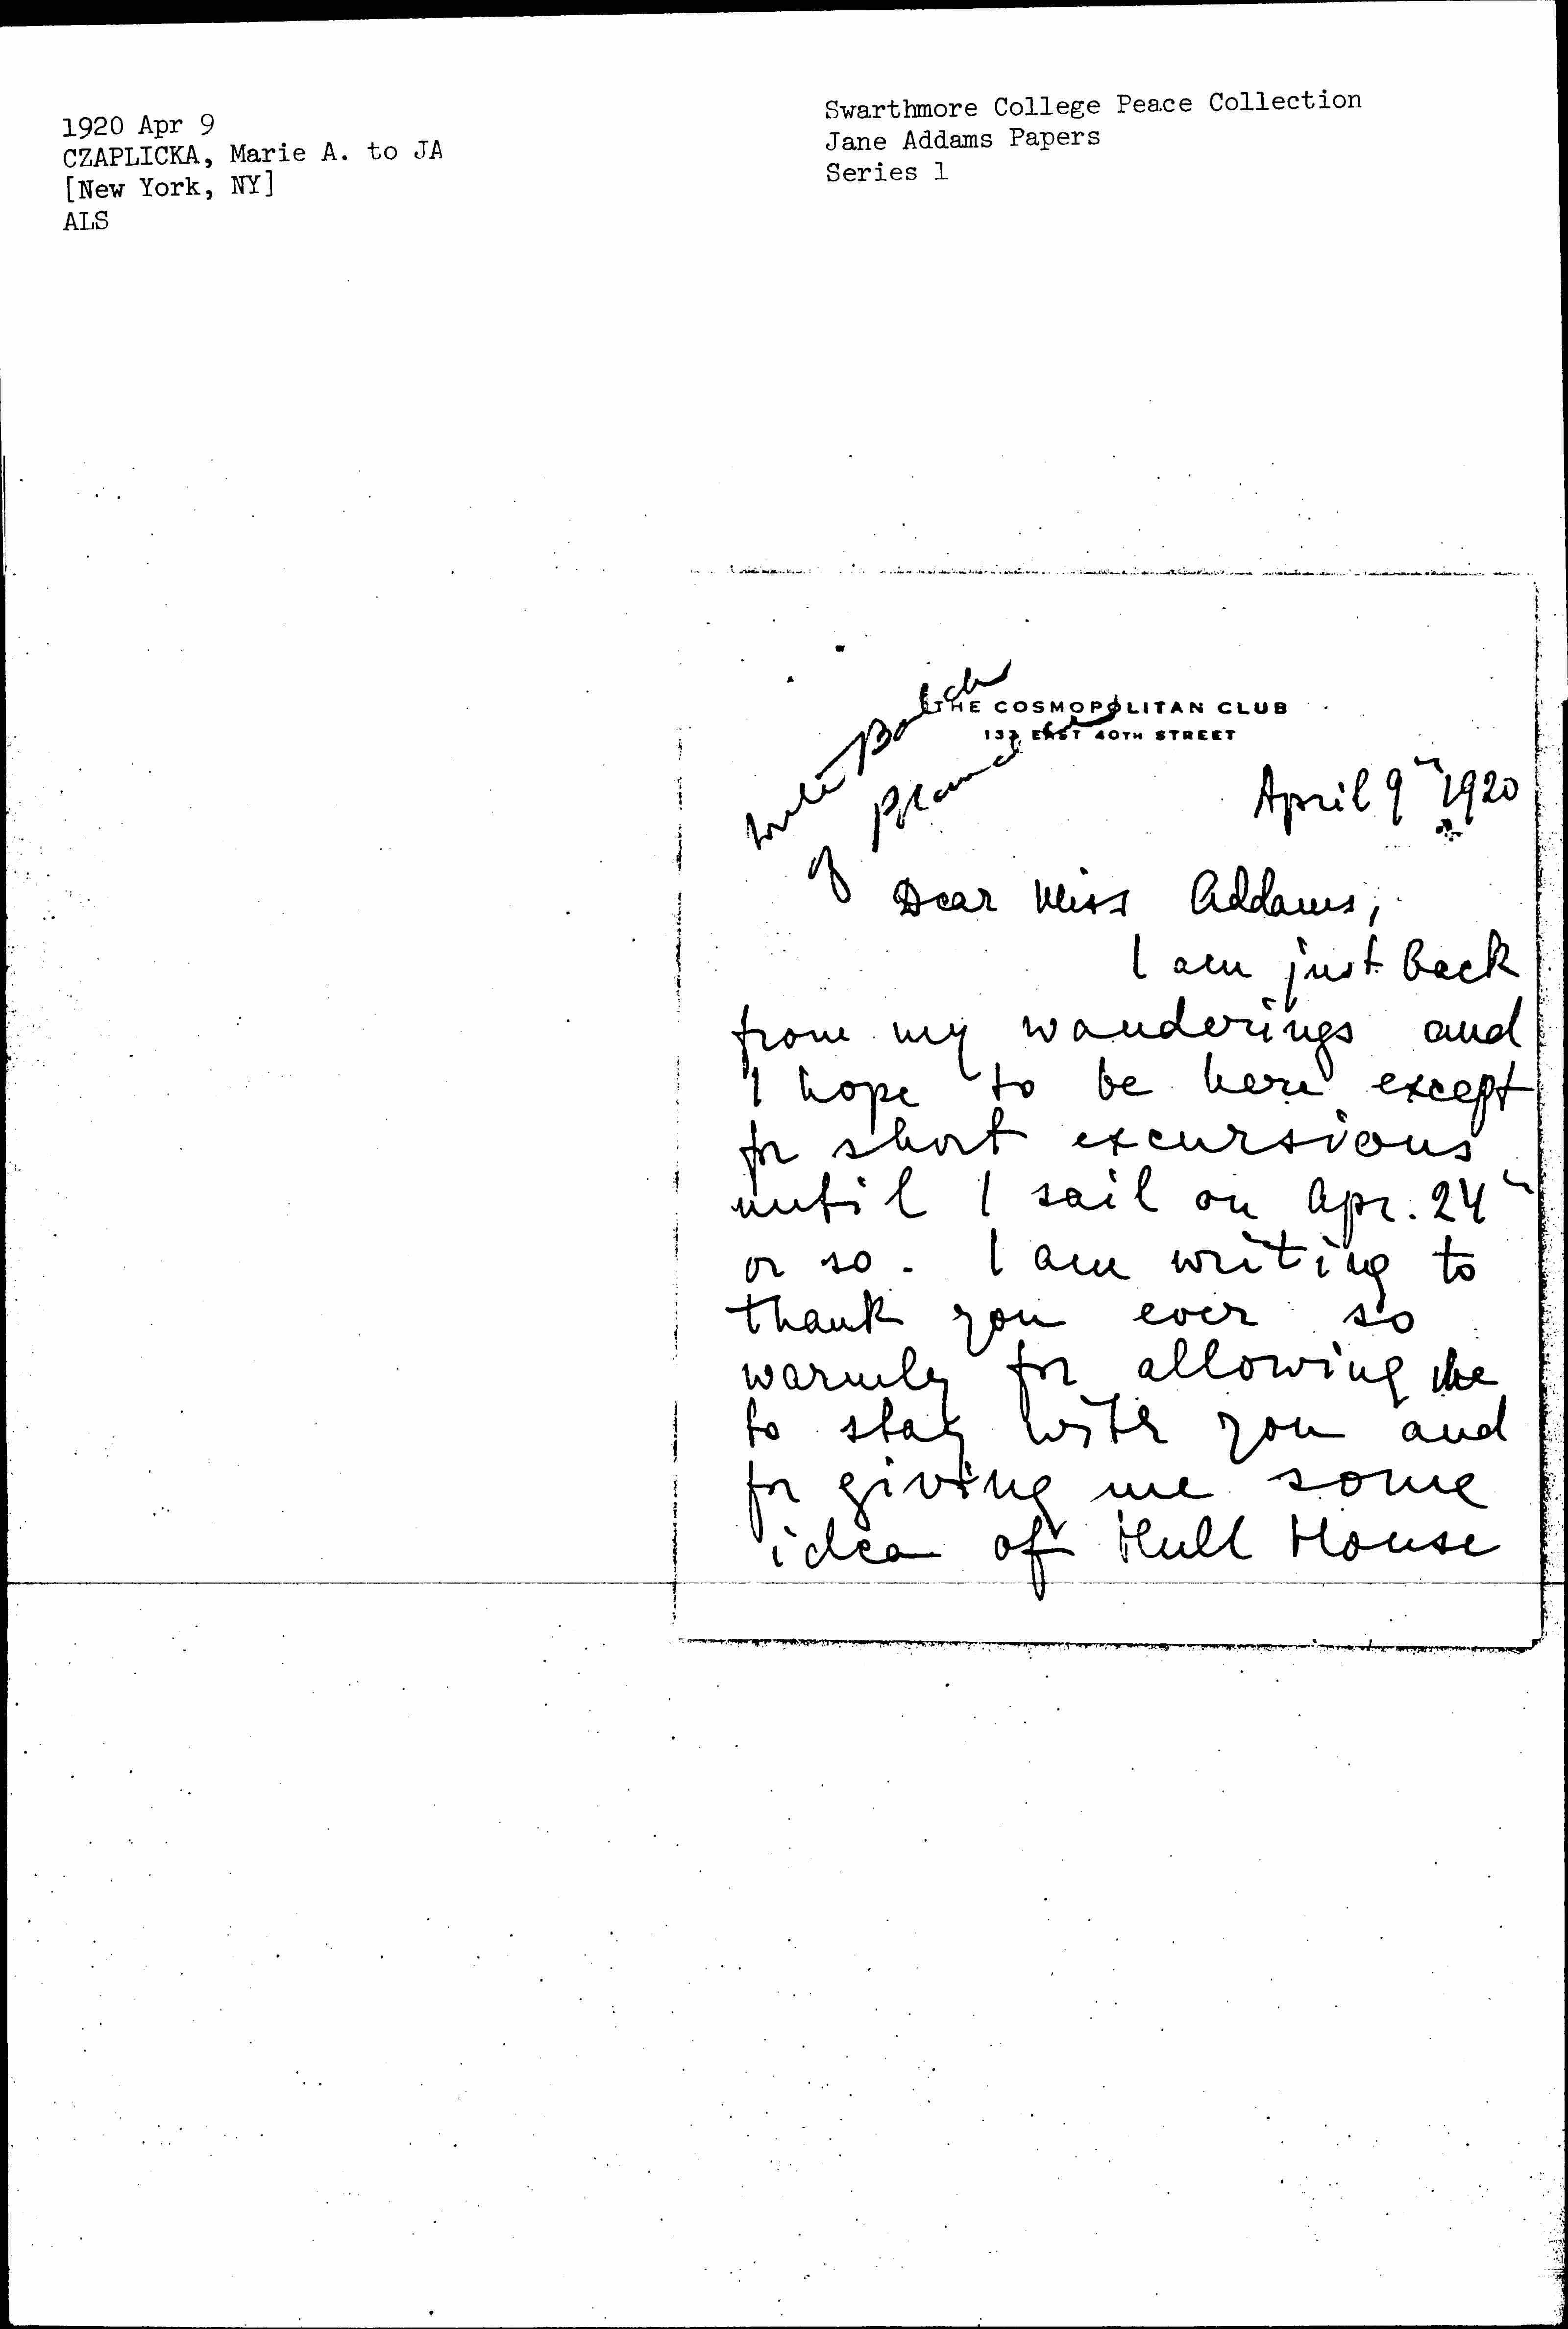 1920 Apr 9
CZAPLICKA, Marie A. to JA
[New York, NY]
ALS
Swarthmore College Peace Collection
Jane Addams Papers
Series 1
THE COSMOPOLITAN CLUB
133 EAST 40TH STREET
Balch
of
April 9th 1920
Dear Miss Addams,
I am just back
from my wanderings and
I hope to be here except
for short excursions
until I sail on Apr. 24th
or so. I am writing to
thank you ever so
warmly for allowing me
to stay with you and
for giving me some
idea of Hull House